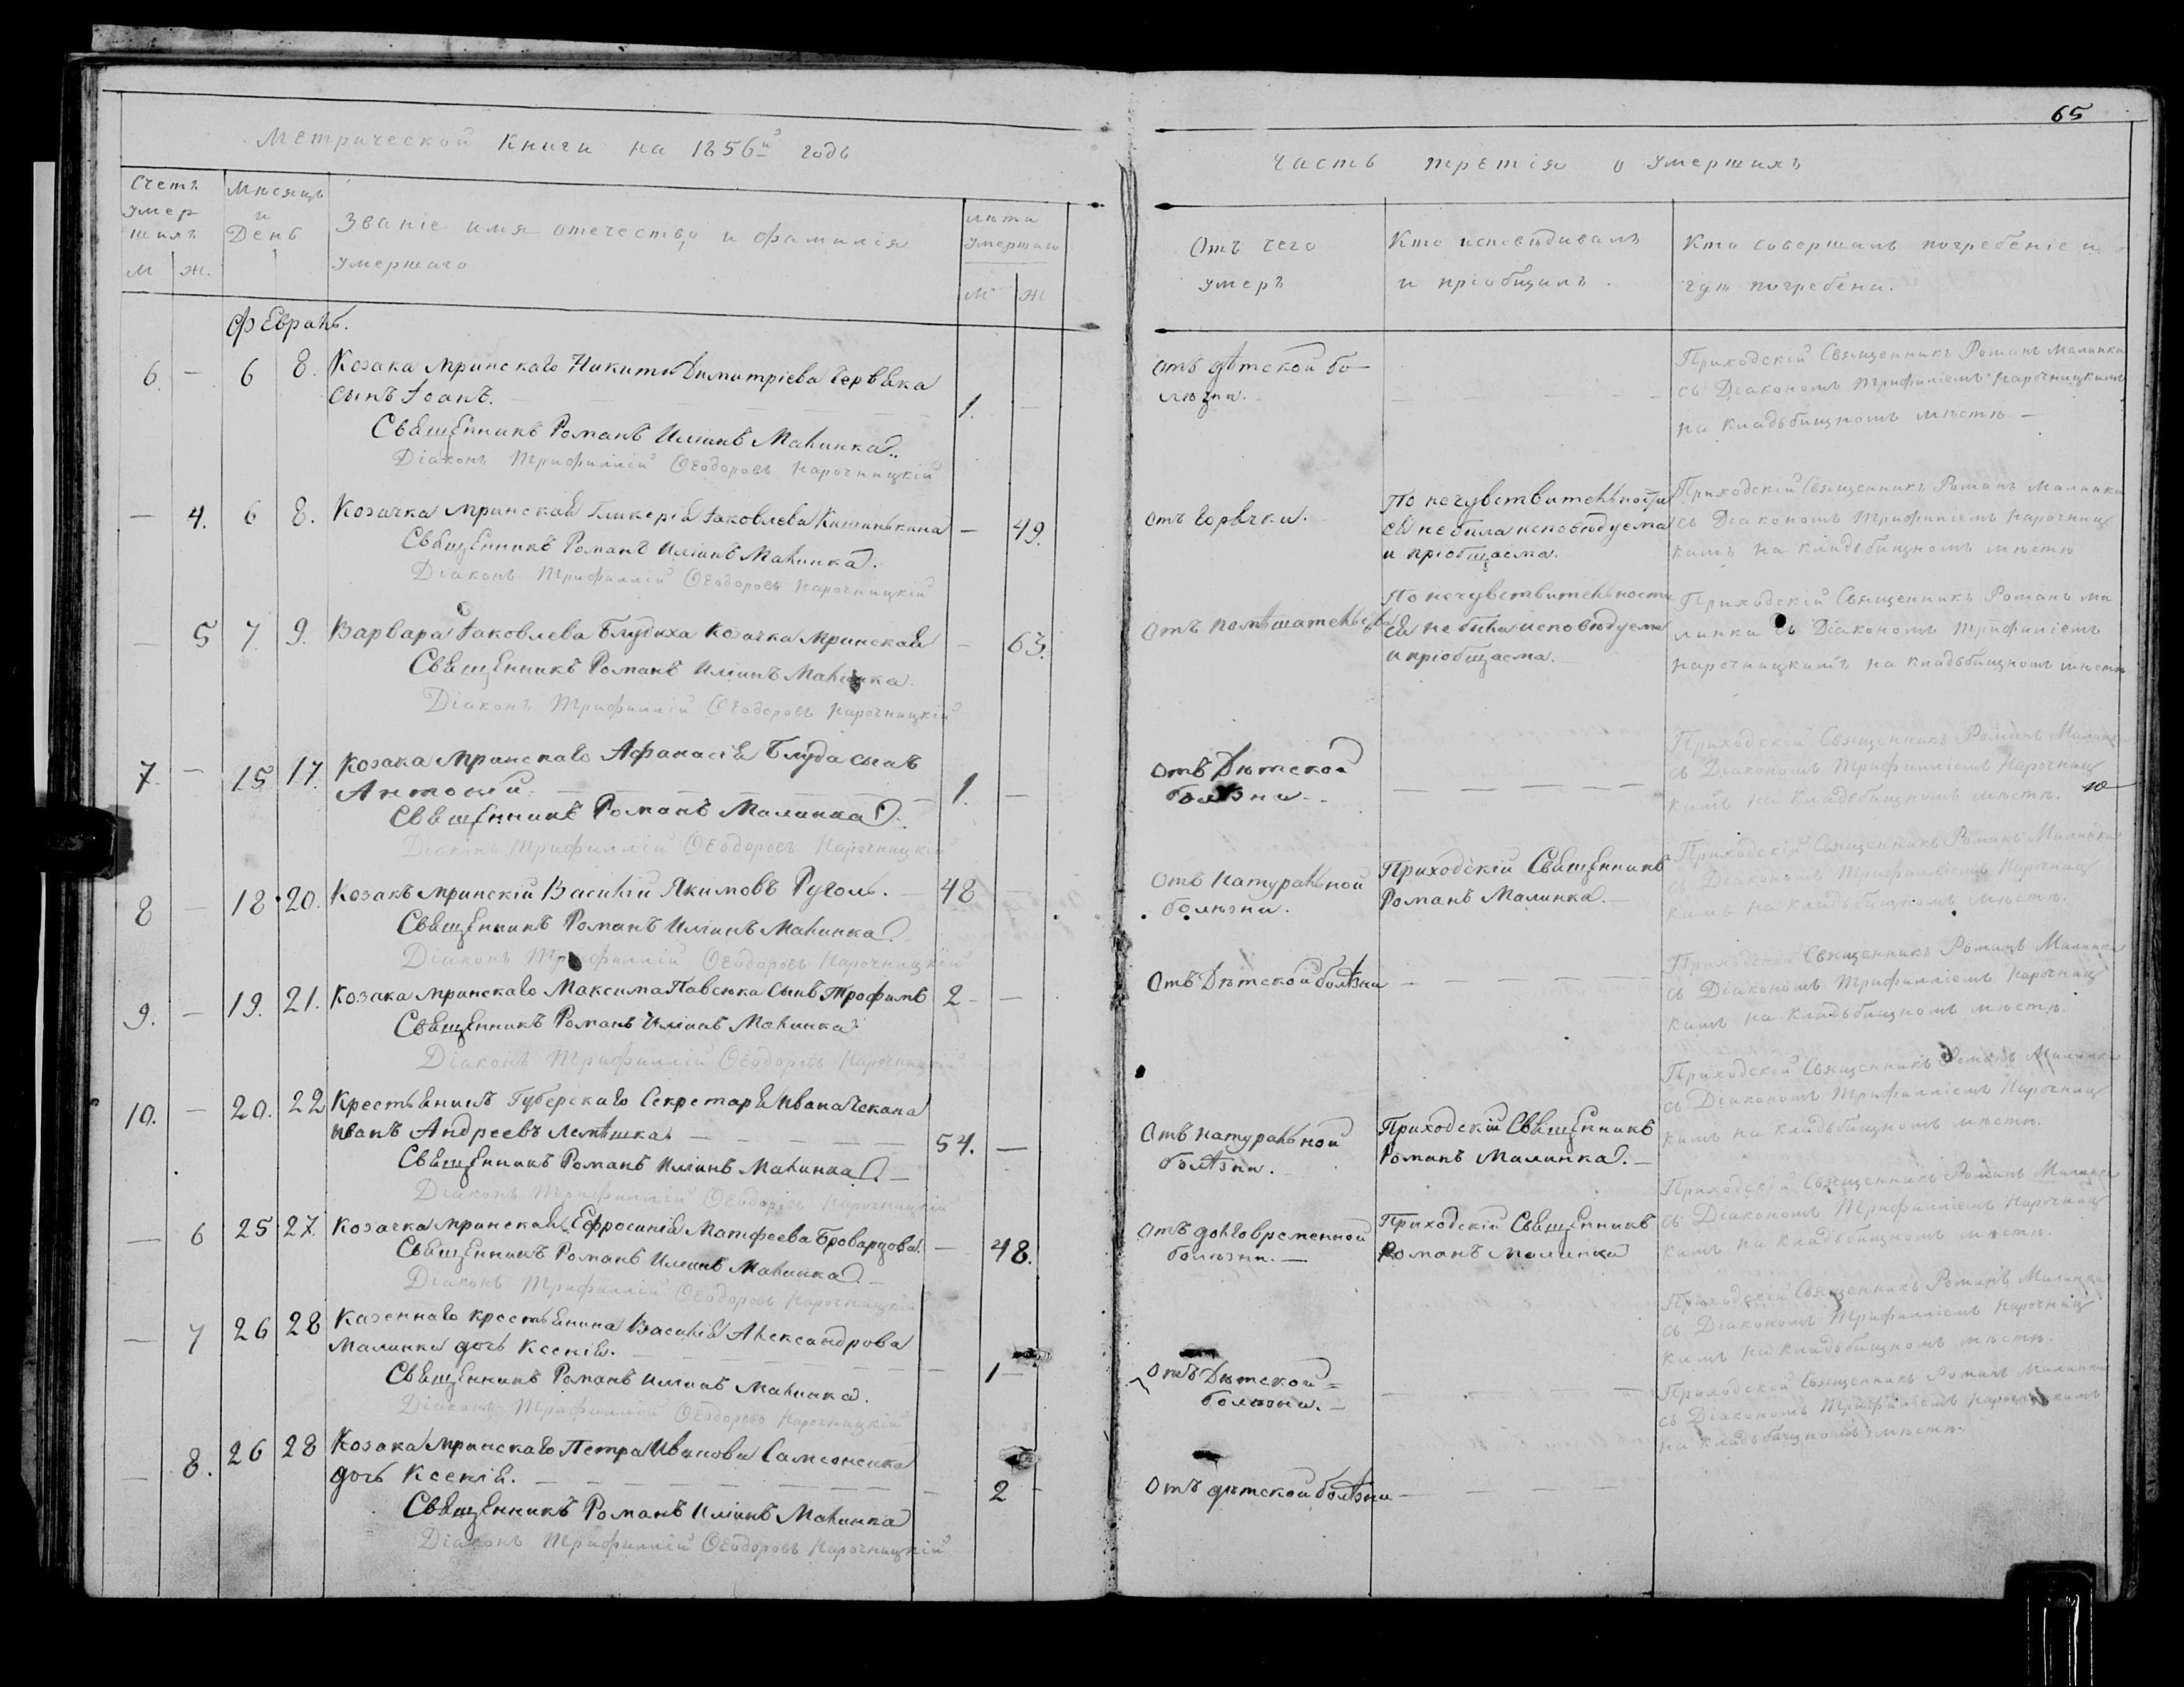 65
Метрической Книги на 1856й годъ
Часть третія о умершихъ
Счетъ умершихъ
М Ж.
Мѣсяцъ и День
Званіе имя отечество, и фамилія умершаго
Лѣта умершаго
М Ж
Отъ чего умеръ
Кто исповѣдивалъ и пріобщилъ.
Кто совершалъ погребеніе и гдѣ погребени.
Февраль.
6. — 6 8. Козака Мринскаго Никити Димитріева Червяка
сынъ Іоанъ. 1. —
Священникъ Романъ Иліинъ Малинка.
Діаконъ Трифиллій Ѳеодоровъ Нарочницкій
Отъ дѣтской бо-
лѣзни.
Приходскій Священникъ Романъ Малинка
съ Діакономъ Трифиліемъ Нарочницкимъ
на кладьбищномъ мѣстѣ —
— 4. 6 8. Козачка Мринская Гликерія Іаковлева Кишинькина — 49.
Священникъ Романъ Иліинъ Малинка.
Діаконъ Трифиллій Ѳеодоровъ Нарочницкій
Отъ горячки.
По нечувствительности
ея не била исповѣдуема
и пріобщаема.
Приходскій Священникъ Романъ Малинка
съ Діакономъ Трифиліемъ Нарочниц
кимъ на кладьбищномъ мѣстѣ
— 5 7. 9. Варвара Іаковлева Блудиха Козачка Мринская — 63.
Священникъ Романъ Иліинъ Малинка.
Діаконъ Трифиллій Ѳеодоровъ Нарочницкій
Отъ помѣшательства
По нечувствительности
Ея не била исповѣдуема
и пріобщаема.
Приходскій Священникъ Романъ Ма
линка съ Діакономъ Трифиліемъ
Нарочницкимъ на кладьбищномъ мѣстѣ
7. — 15 17. Козака Мринскаго Афанасія Блуда сынъ
Антоній 1. —
Священникъ Романъ Малинка.
Діаконъ Трифиллій Ѳеодоровъ Нарочницкій
Отъ Дѣтской
болѣзни.
Приходскій Священникъ Романъ Малинка
съ Діакономъ Трифилліемъ Нарочниц
кимъ на кладьбищномъ мѣстѣ.
8 — 18 20. Козакъ Мринскій Василій Якимовъ Руголь. — 48 —
Священникъ Романъ Иліинъ Малинка.
Діаконъ Трифиллій Ѳеодоровъ Нарочницкій
Отъ Натуральной
болѣзни.
Приходскій Священникъ
Романъ Малинка.
Приходскій Священникъ Романъ Малинка
съ Діакономъ Трифилліемъ Нарочниц
кимъ на кладьбищномъ мѣстѣ.
9. — 19. 21. Козака Мринскаго Максима Павсюка сынъ Трофимъ 2 — —
Священникъ Романъ Иліинъ Малинка
Діаконъ Трифиллій Ѳеодоровъ Нарочницкій
Отъ Дѣтской болѣзни
Приходскій Священникъ Романъ Малинка
съ Діакономъ Трифилліемъ Нарочниц
кимъ на кладьбищномъ мѣстѣ.
10. — 20. 22 Крестьянинъ Губерскаго Секретаря Ивана Чекана
Иванъ Андреевъ Лемѣшка. 54. —
Священникъ Романъ Иліинъ Малинка.
Діаконъ Трифиллій Ѳеодоровъ Нарочницкій
Отъ натуральной
болѣзни.
Приходскій Священникъ
Романъ Малинка.
Приходскій Священникъ Романъ Малинка
съ Діакономъ Трифилліемъ Нарочниц
кимъ на кладьбищномъ мѣстѣ.
— 6 25 27. Козачка Мринская Ефросинія Матфеева Броварцова. — 48.
Священникъ Романъ Иліинъ Малинка.
Діаконъ Трифиллій Ѳеодоровъ Нарочницкій
Отъ долговременной
болѣзни.
Приходскій Священникъ
Романъ Малинка
Приходскій Священникъ Романъ Малинка
съ Діакономъ Трифилліемъ Нарочниц
кимъ на кладьбищномъ мѣстѣ.
— 7 26 28 Казеннаго крестьянина Василія Александрова
Малинки дочь Ксенія. 1
Священникъ Романъ Иліинъ Малинка.
Діаконъ Трифиллій Ѳеодоровъ Нарочницкій
Отъ Дѣтской
болѣзни.
Приходскій Священникъ Романъ Малинка
съ Діакономъ Трифилліемъ Нарочниц
кимъ на кладьбищномъ мѣстѣ.
— 8. 26 28 Козака Мринскаго Петра Иванова Самсоненка
дочь Ксенія. 2
Священникъ Романъ Иліинъ Малинка
Діаконъ Трифиллій Ѳеодоровъ Нарочницкій
Отъ дѣтской болѣзни
Приходскій Священникъ Романъ Малинка
съ Діакономъ Трифиліемъ Нарочницкимъ
на кладьбищномъ мѣстѣ.